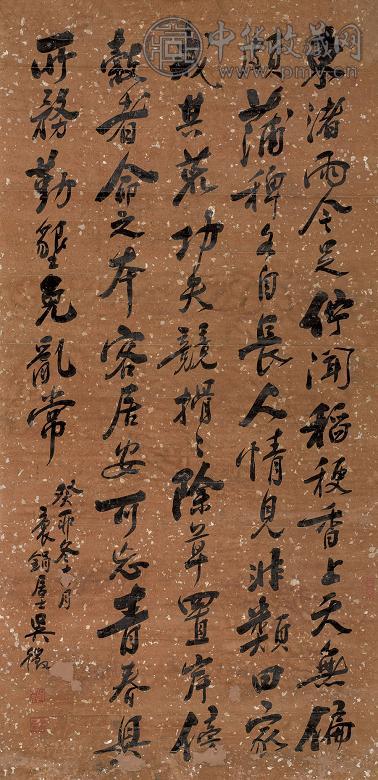 中华收藏网
www.pmv.cn
東渚雨今足佇聞稻稉香上天無偏
頗蒲稗各自長人情見非類田家
戒其荒功夫競搰〻除草置岸傍
穀者命之本客居安可忘青春具
所務勤墾免亂常
癸卯冬月
袌鋗居士吳徵